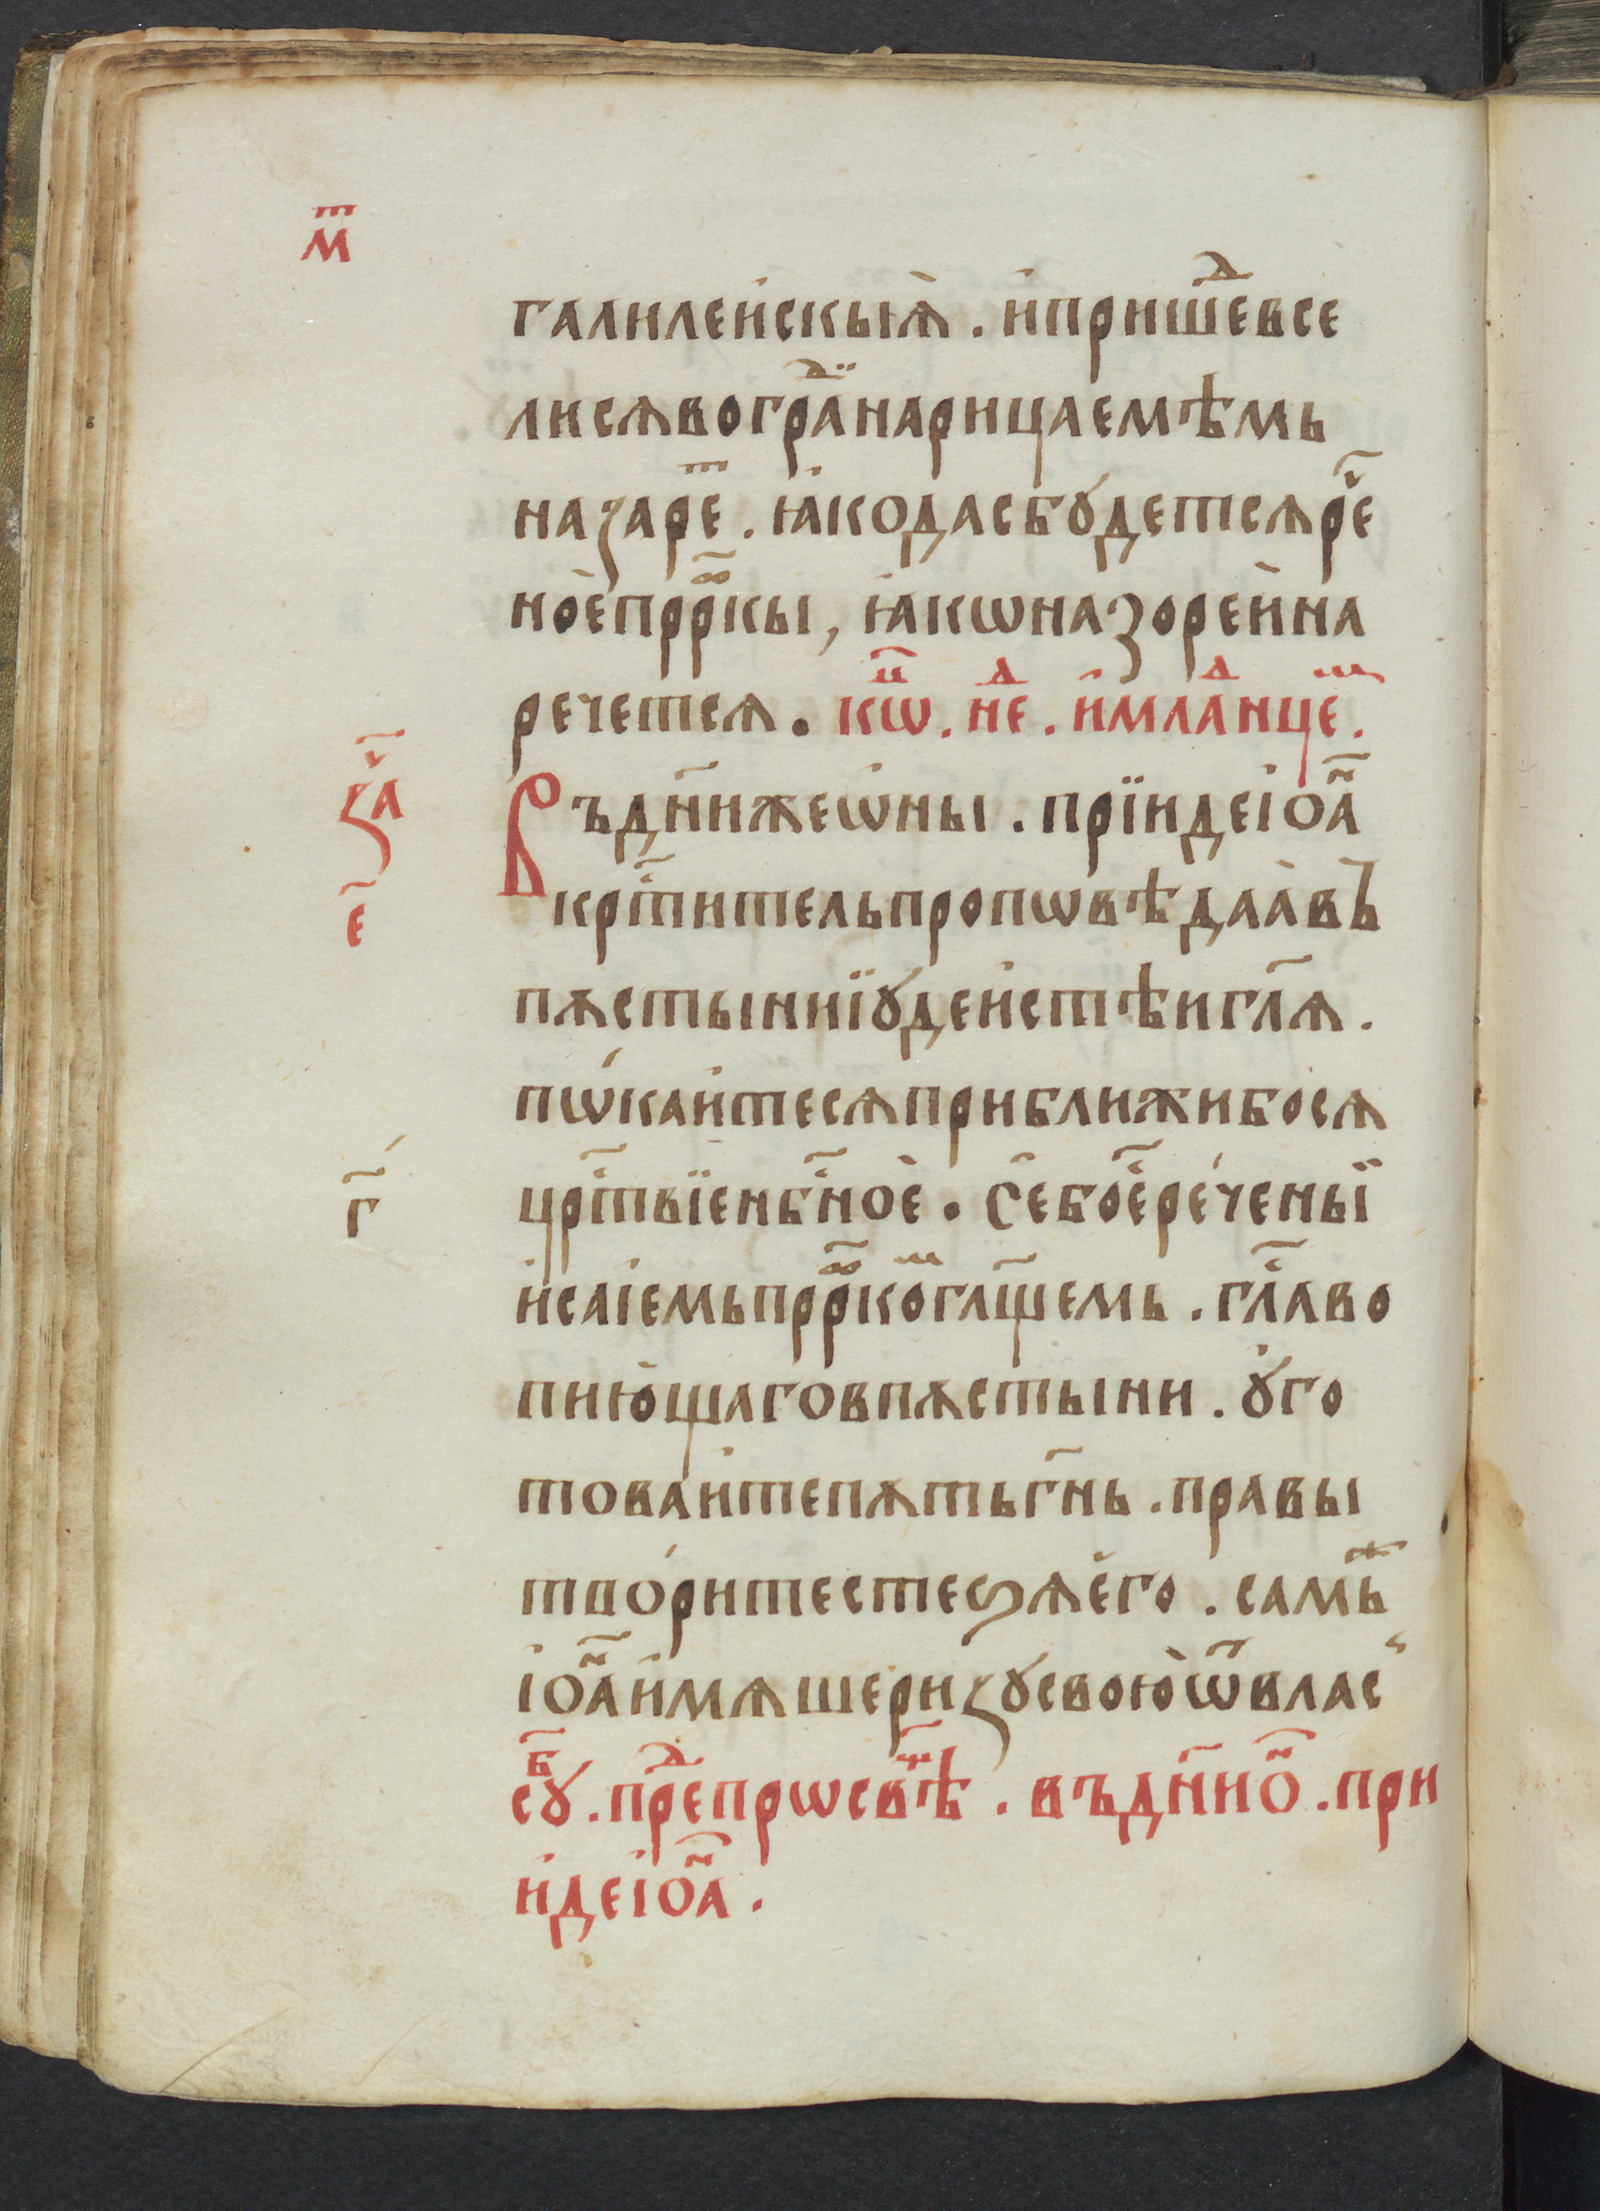 м҃ⷮ
галилеискыѧ . ипришеⷣвсе
лисѧвограⷣнарицаемѣмь
назареⷮ . ꙗкодасбꙋдетсѧреⷱ
ноепрⷪркы, ꙗкѡназореина
речетсѧ . кѡⷩ . неⷣ . имлаⷣнцеⷨ .
заⷱ
Въднⷩ҇ижеѡны . прїидеіоаⷩ
е҃
крⷭтительпропѡвѣдаавъ
пѫстыниїꙋдеистѣиглѧ҃ .
пѡкаитесѧприближибосѧ
г҃
црⷭтвїенбⷭ҇ное . Себоеⷭреченыї
исаіемьпрⷪркоⷨглщ҃емь . глⷭ҇аво
пиющаговпѫстыни . ꙋго
товаитепѫтьгн҃ь . правы
творитестеѕѧего . самъⷤ
іоаⷩимѧшеризꙋсвоюѿвлас
сꙋⷠ . преⷣпрѡсвⷳѣ . въднⷩ҇иоⷩ . при
идеіоаⷩ .